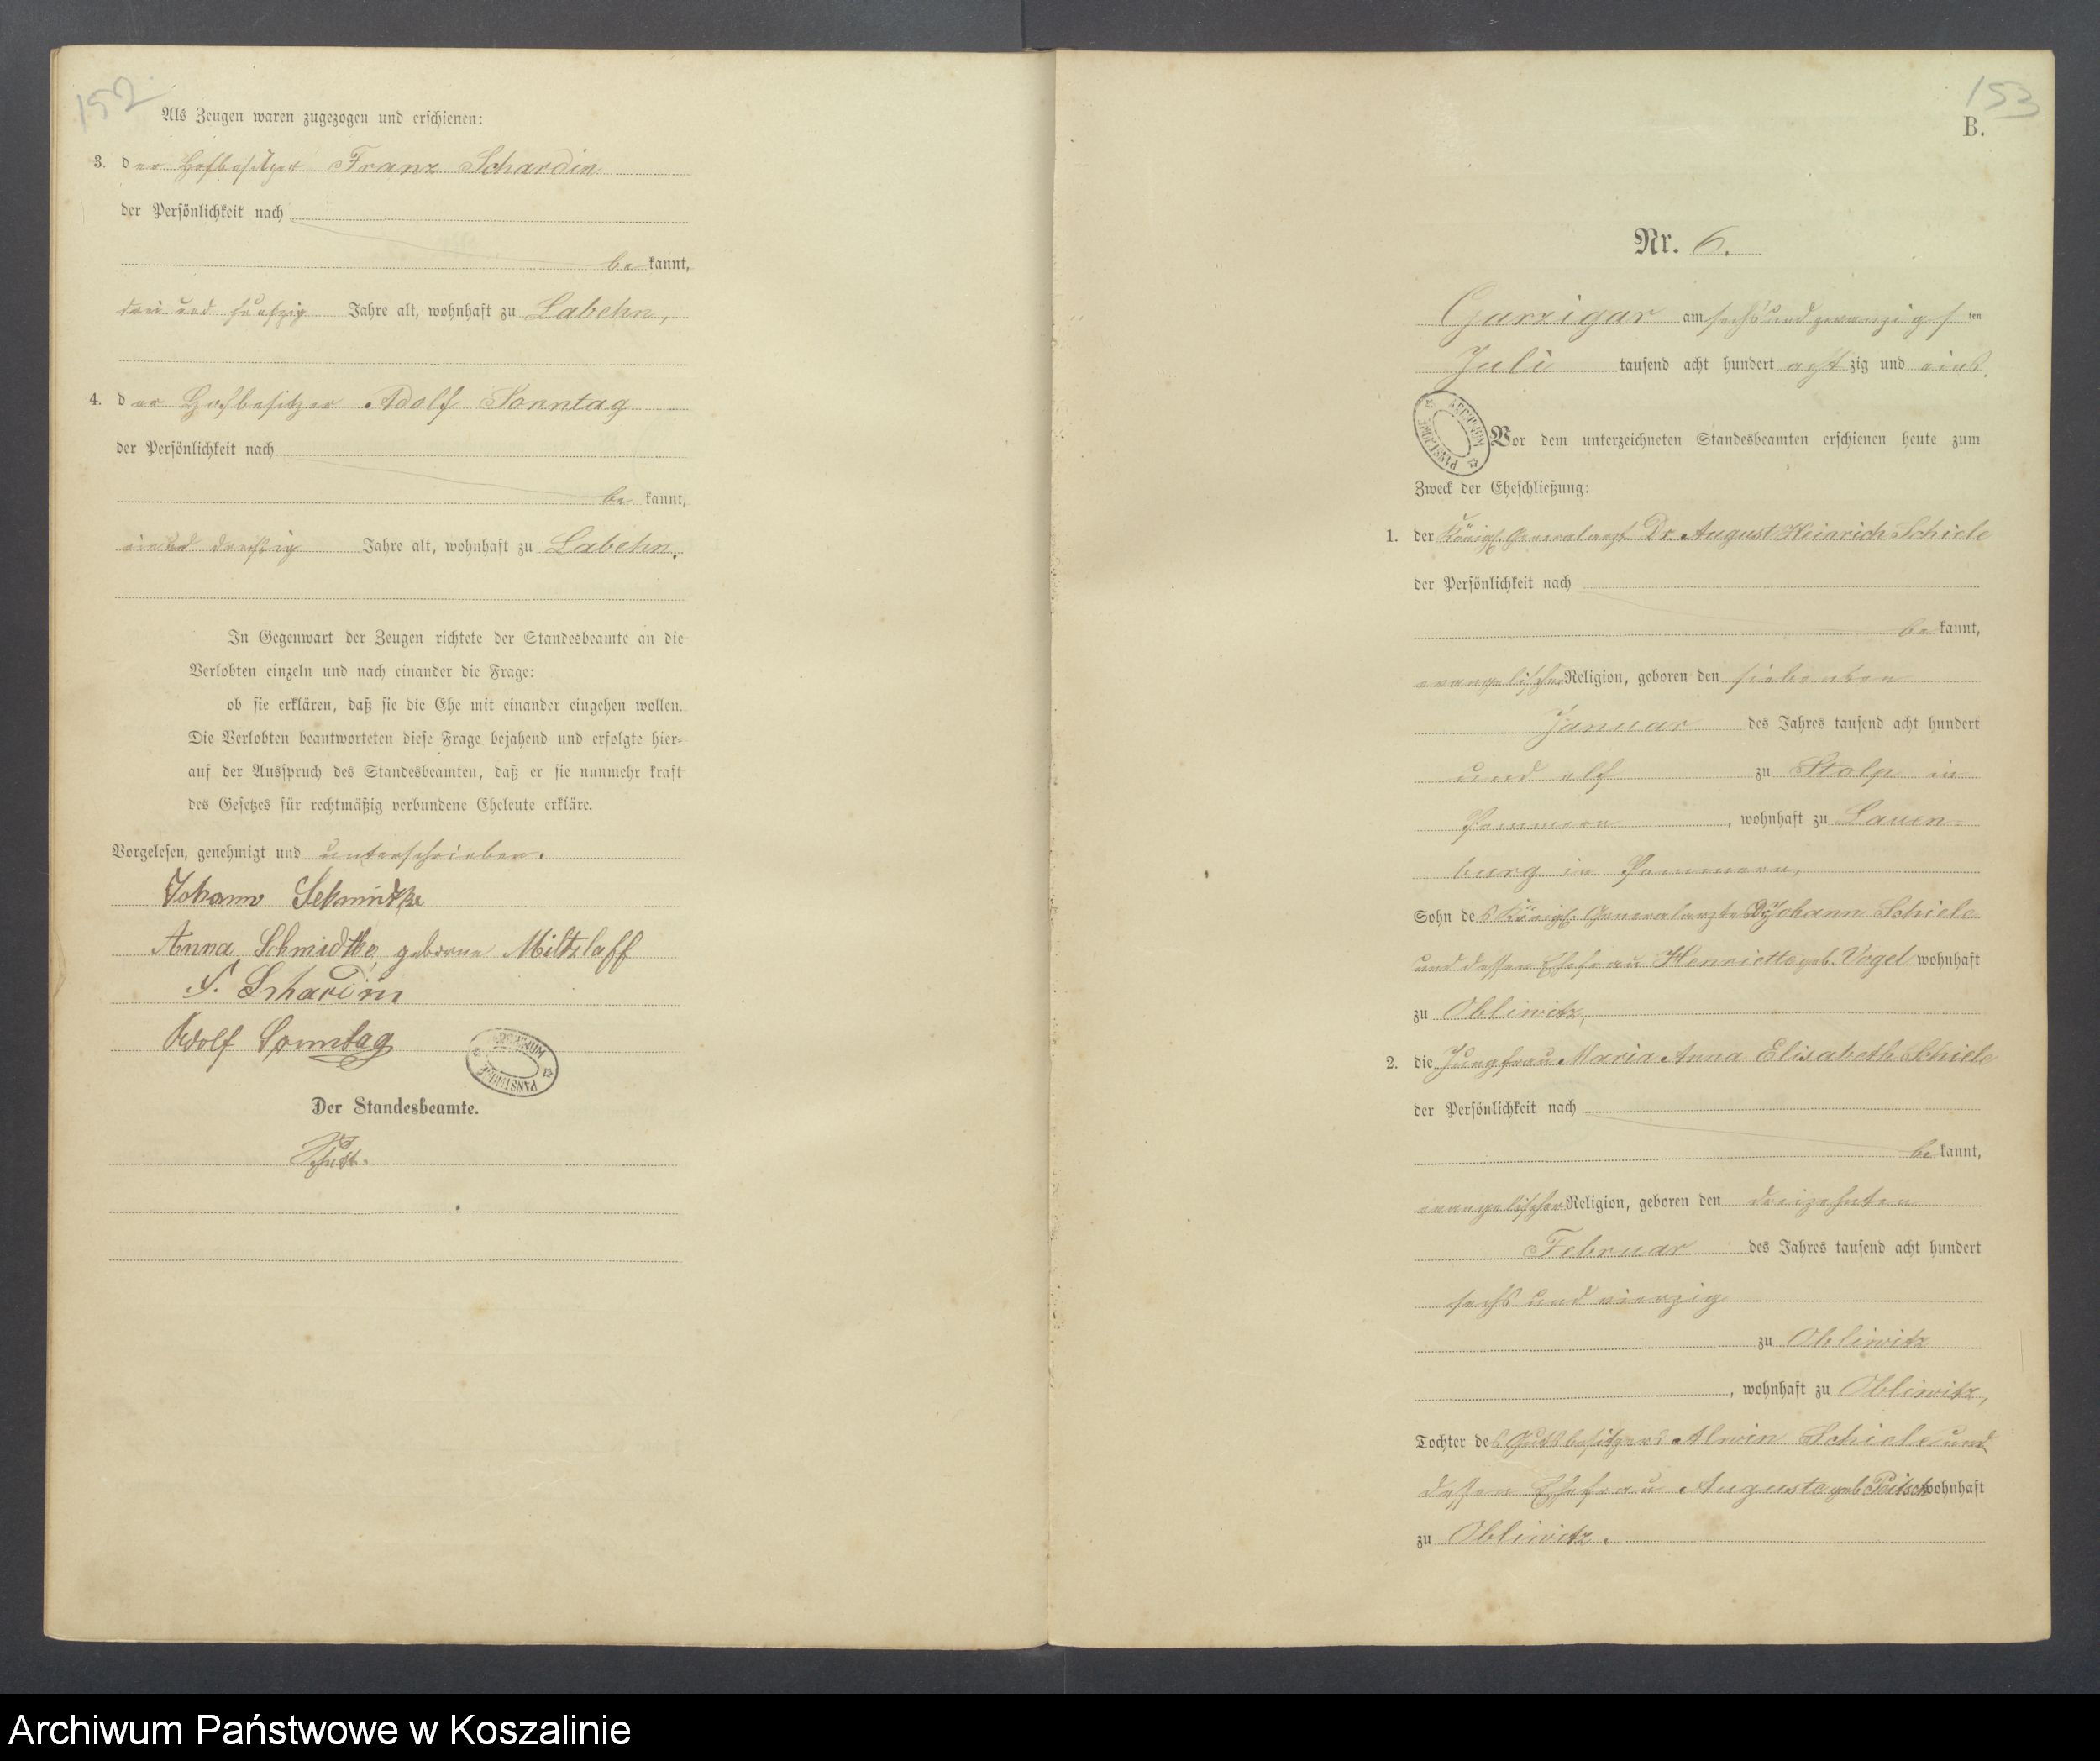 152
Als Zeugen waren zugezogen und erschienen:
3. der Hofbesitzer Franz Schardin
der Persönlichkeit nach
be kannt,
drei und funfzig Jahre alt, wohnhaft zu Labehn,
4. der Hofbesitzer Adolf Sonntag
der Persönlichkeit nach
be kannt,
einund dreißig Jahre alt, wohnhaft zu Labehn.
In Gegenwart der Zeugen richtete der Standesbeamte an die
Verlobten einzeln und nach einander die Frage:
ob sie erklären, daß sie die Ehe mit einander eingehen wollen.
Die Verlobten beantworteten diese Frage bejahend und erfolgte hier-
auf der Ausspruch des Standesbeamten, daß er sie nunmehr kraft
des Gesetzes für rechtmäßig verbundene Eheleute erkläre.
Vorgelesen, genehmigt und unterschrieben.
Johann Schmidtke
Anna Schmidtke geborne Miltzlaff
F. Schardin
Adolf Sonntag
ARCHIWUM PAŃSTWOWE
Der Standesbeamte.
153
B.
Nr. 6.
Garzigar am sechsundzwanzigs ten
Juli tausend acht hundert acht zig und eins.
ARCHIWUM PAŃSTWOWE
Vor dem unterzeichneten Standesbeamten erschienen heute zum
Zweck der Eheschließung:
1. der Königl. Generalarzt Dr. August Heinrich Schiele
der Persönlichkeit nach
be kannt,
evangelischer Religion, geboren den siebenten
Januar des Jahres tausend acht hundert
und elf zu Stolp in
Pommern, wohnhaft zu Lauen-
burg in Pommern,
Sohn des Königl. Generalarztes Dr Johann Schiele
und dessen Ehefrau Henriette geb. Vogel wohnhaft
zu Obliwitz,
2. die Jungfrau Maria Anna Elisabeth Schiele
der Persönlichkeit nach
be kannt,
evangelischer Religion, geboren den dreizehnten
Februar des Jahres tausend acht hundert
sechs und vierzig
zu Obliwitz
, wohnhaft zu Obliwitz,
Tochter des Gutsbesitzers Alwin Schiele und
dessen Ehefrau Auguste geb. wohnhaft
zu Obliwitz.
Archiwum Państwowe w Koszalinie